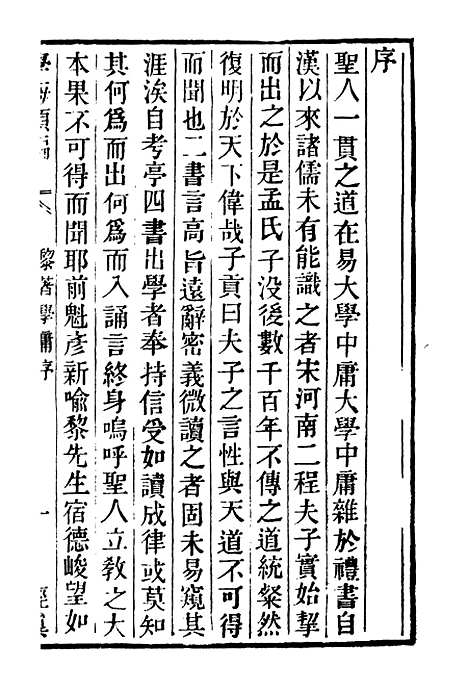 序
聖人一貫之道在易大學中庸大學中庸雜於禮書自
漢以來諸儒未有能識之者宋河南二程夫子實始挈
而出之於是孟氏子没後數千百年不傳之道統粲然
復明於天下偉哉子貢曰夫子之言性與天道不可得
而聞也二書言高旨遠辭密義微讀之者固未易窺其
涯涘自考亭四書出學者奉持信受如讀成律或莫知
其何爲而出何爲而入誦言終身嗚呼聖人立敎之大
本果不可得而聞耶前魁彥新喻黎先生宿德峻望如
黎著學庸序 一